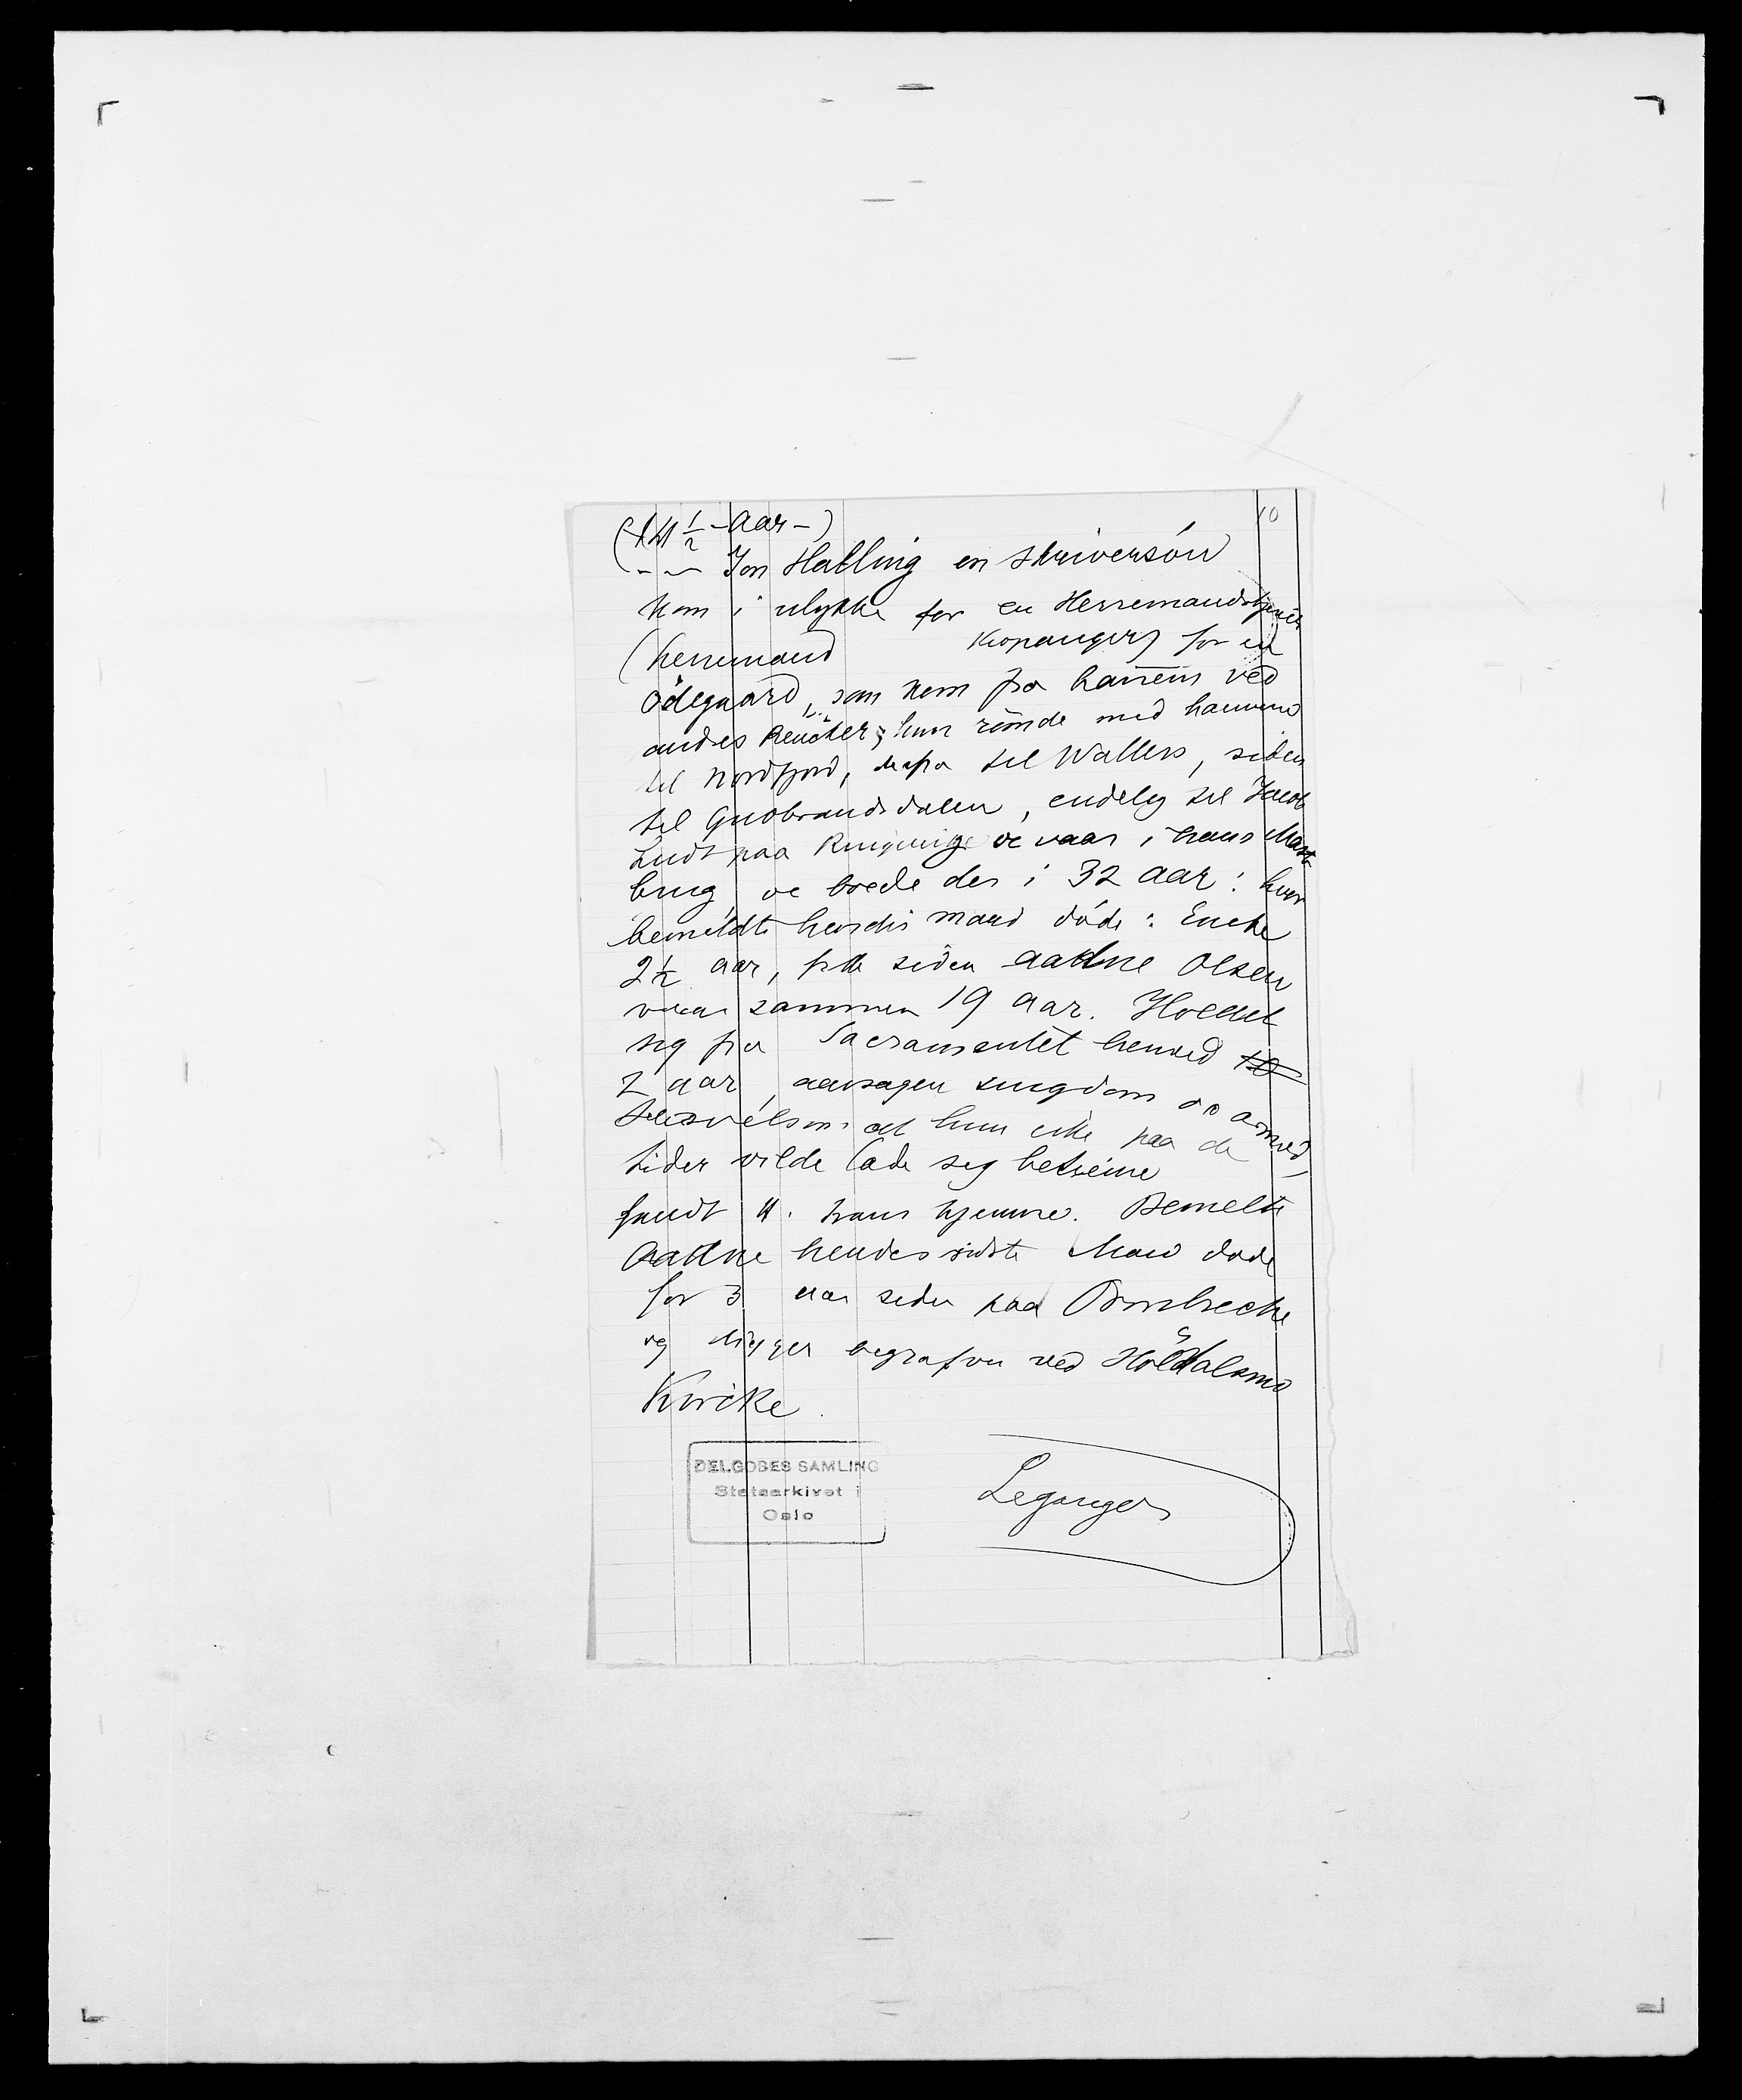 10
(½ - Aar -)
- - Jon Halling en skriversön
Kom i ulykke for en Herremandstjener
(herremand Kopanger) for en
Ödegaard, som kom fra hannem ved
andres Reucker; hun römde med hannem
til Nordfjord, derfra til Walders, siden
til Gudbrandsdalen, endelig til Jacob
Ludt paa Ringerige oc vaar i hans
brug oc boede der i 32 Aar: hvor
bemeldte hendis mand döde: Encke
2½ aar, fik siden Aadne Olsen
vaar sammen 19 Aar. Holdet
sig fra Sacramentet henved
2 aar, aarsagen oc armod,
at hun icke paa de
tider vilde lade sig betiene
fandt hans hjemme. Bemelte
Aadne hendes sidste Man döde
for 3 aar siden paa
og ligger begrafven ved Höldalsmo
Kircke.
DELGOBES SAMLING
Statsarkivet i
Oslo
Leganger